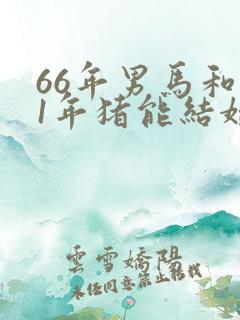 66年男馬和
1年猪能結婚
雲雪嬌陽
未任同意禁止転載